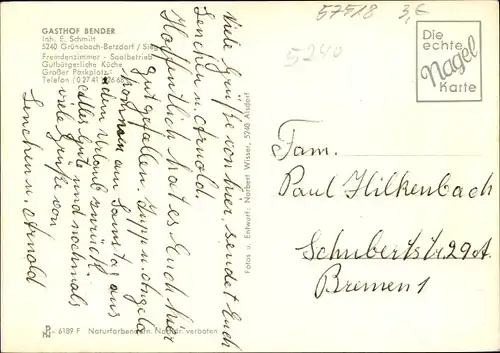 GASTHOF BENDER
Inh. E. Schmitt
5240 Grünebach-Betzdorf / Sieg
Fremdenzimmer - Saalbetrieb
Gutbürgerliche Küche
Großer Parkplatz
Telefon (0 27 41)
Viele Grüße von hier, sendet Euch
Lenchen u. Arnold.
Hoffentlich hat es Euch hier
gut gefallen. u. Angela
kommen am Samstag aus
dem Urlaub zurück.
alles Gute und nochmals
viele Grüße von
Lenchen u. Arnold
6189 F Naturfarben Nachdr. verboten
Fotos u. Entwurf: Norbert Wisser, 5240 Alsdorf
57518 3,€
5240
Die
echte
Nagel
Karte
Fam.
Paul Hilkenbach
Schubertstr. 29A
Bremen 1